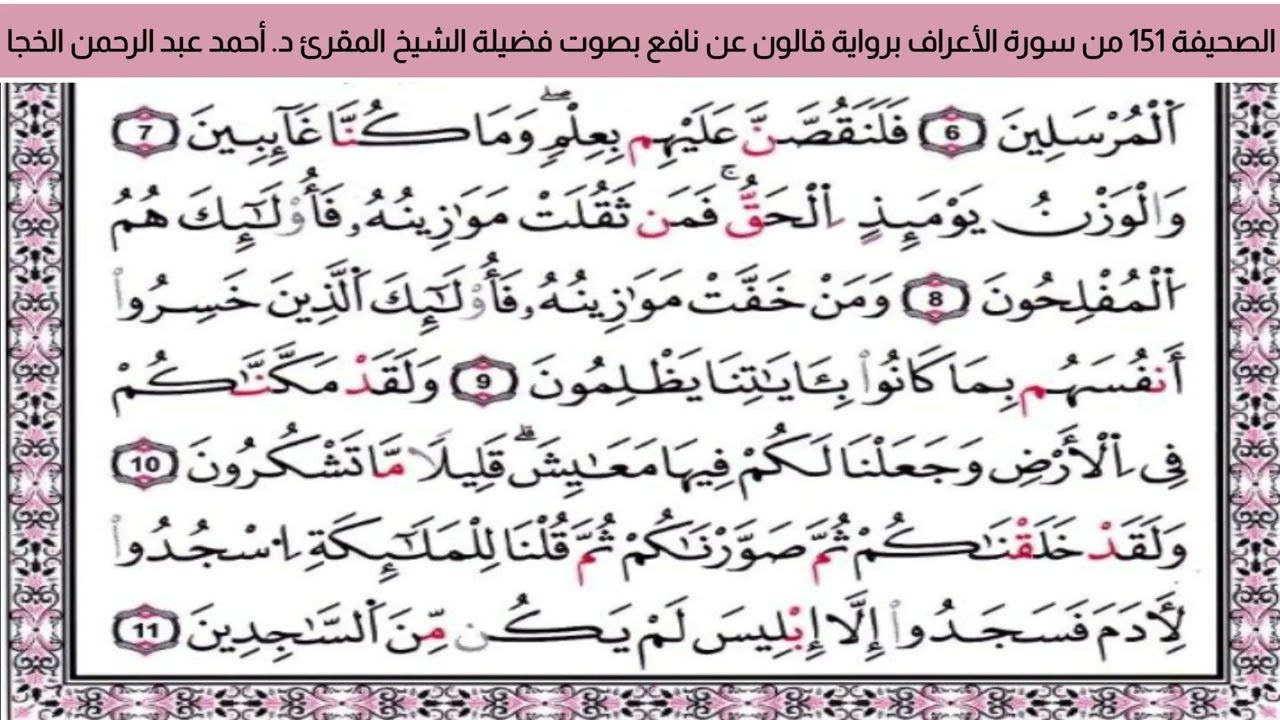 الصحيفة 151 من سورة الأعراف برواية قالون عن نافع بصوت فضيلة الشيخ المقرئ د. أحمد عبد الرحمن الخجا
اَ۬لْمُرْسَلِينَ 6 فَلَنَقُصَّنَّ عَلَيْهِم بِعِلْمٖۖ وَمَا كُنَّا غَآئِبِينَ 7
وَالْوَزْنُ يَوْمَئِذٍ اِ۬لْحَقُّۚ فَمَن ثَقُلَتْ مَوَٰزِينُهُۥ فَأُوْلَٰٓئِكَ هُمُ
اُ۬لْمُفْلِحُونَ 8 وَمَنْ خَفَّتْ مَوَٰزِينُهُۥ فَأُوْلَٰٓئِكَ اَ۬لذِينَ خَسِرُواْ
أَنفُسَهُم بِمَا كَانُواْ بِـَٔايَٰتِنَا يَظْلِمُونَ 9 وَلَقَدْ مَكَّنَّٰكُمْ
فِي اِ۬لْأَرْضِ وَجَعَلْنَا لَكُمْ فِيهَا مَعَٰيِشَۗ قَلِيلاٗ مَّا تَشْكُرُونَ 10
وَلَقَدْ خَلَقْنَٰكُمْ ثُمَّ صَوَّرْنَٰكُمْ ثُمَّ قُلْنَا لِلْمَلَٰٓئِكَةِ اِ۟سْجُدُواْ
لِأٓدَمَ فَسَجَدُواْ إِلَّا إِبْلِيسَ لَمْ يَكُن مِّنَ اَ۬لسَّٰجِدِينَ 11